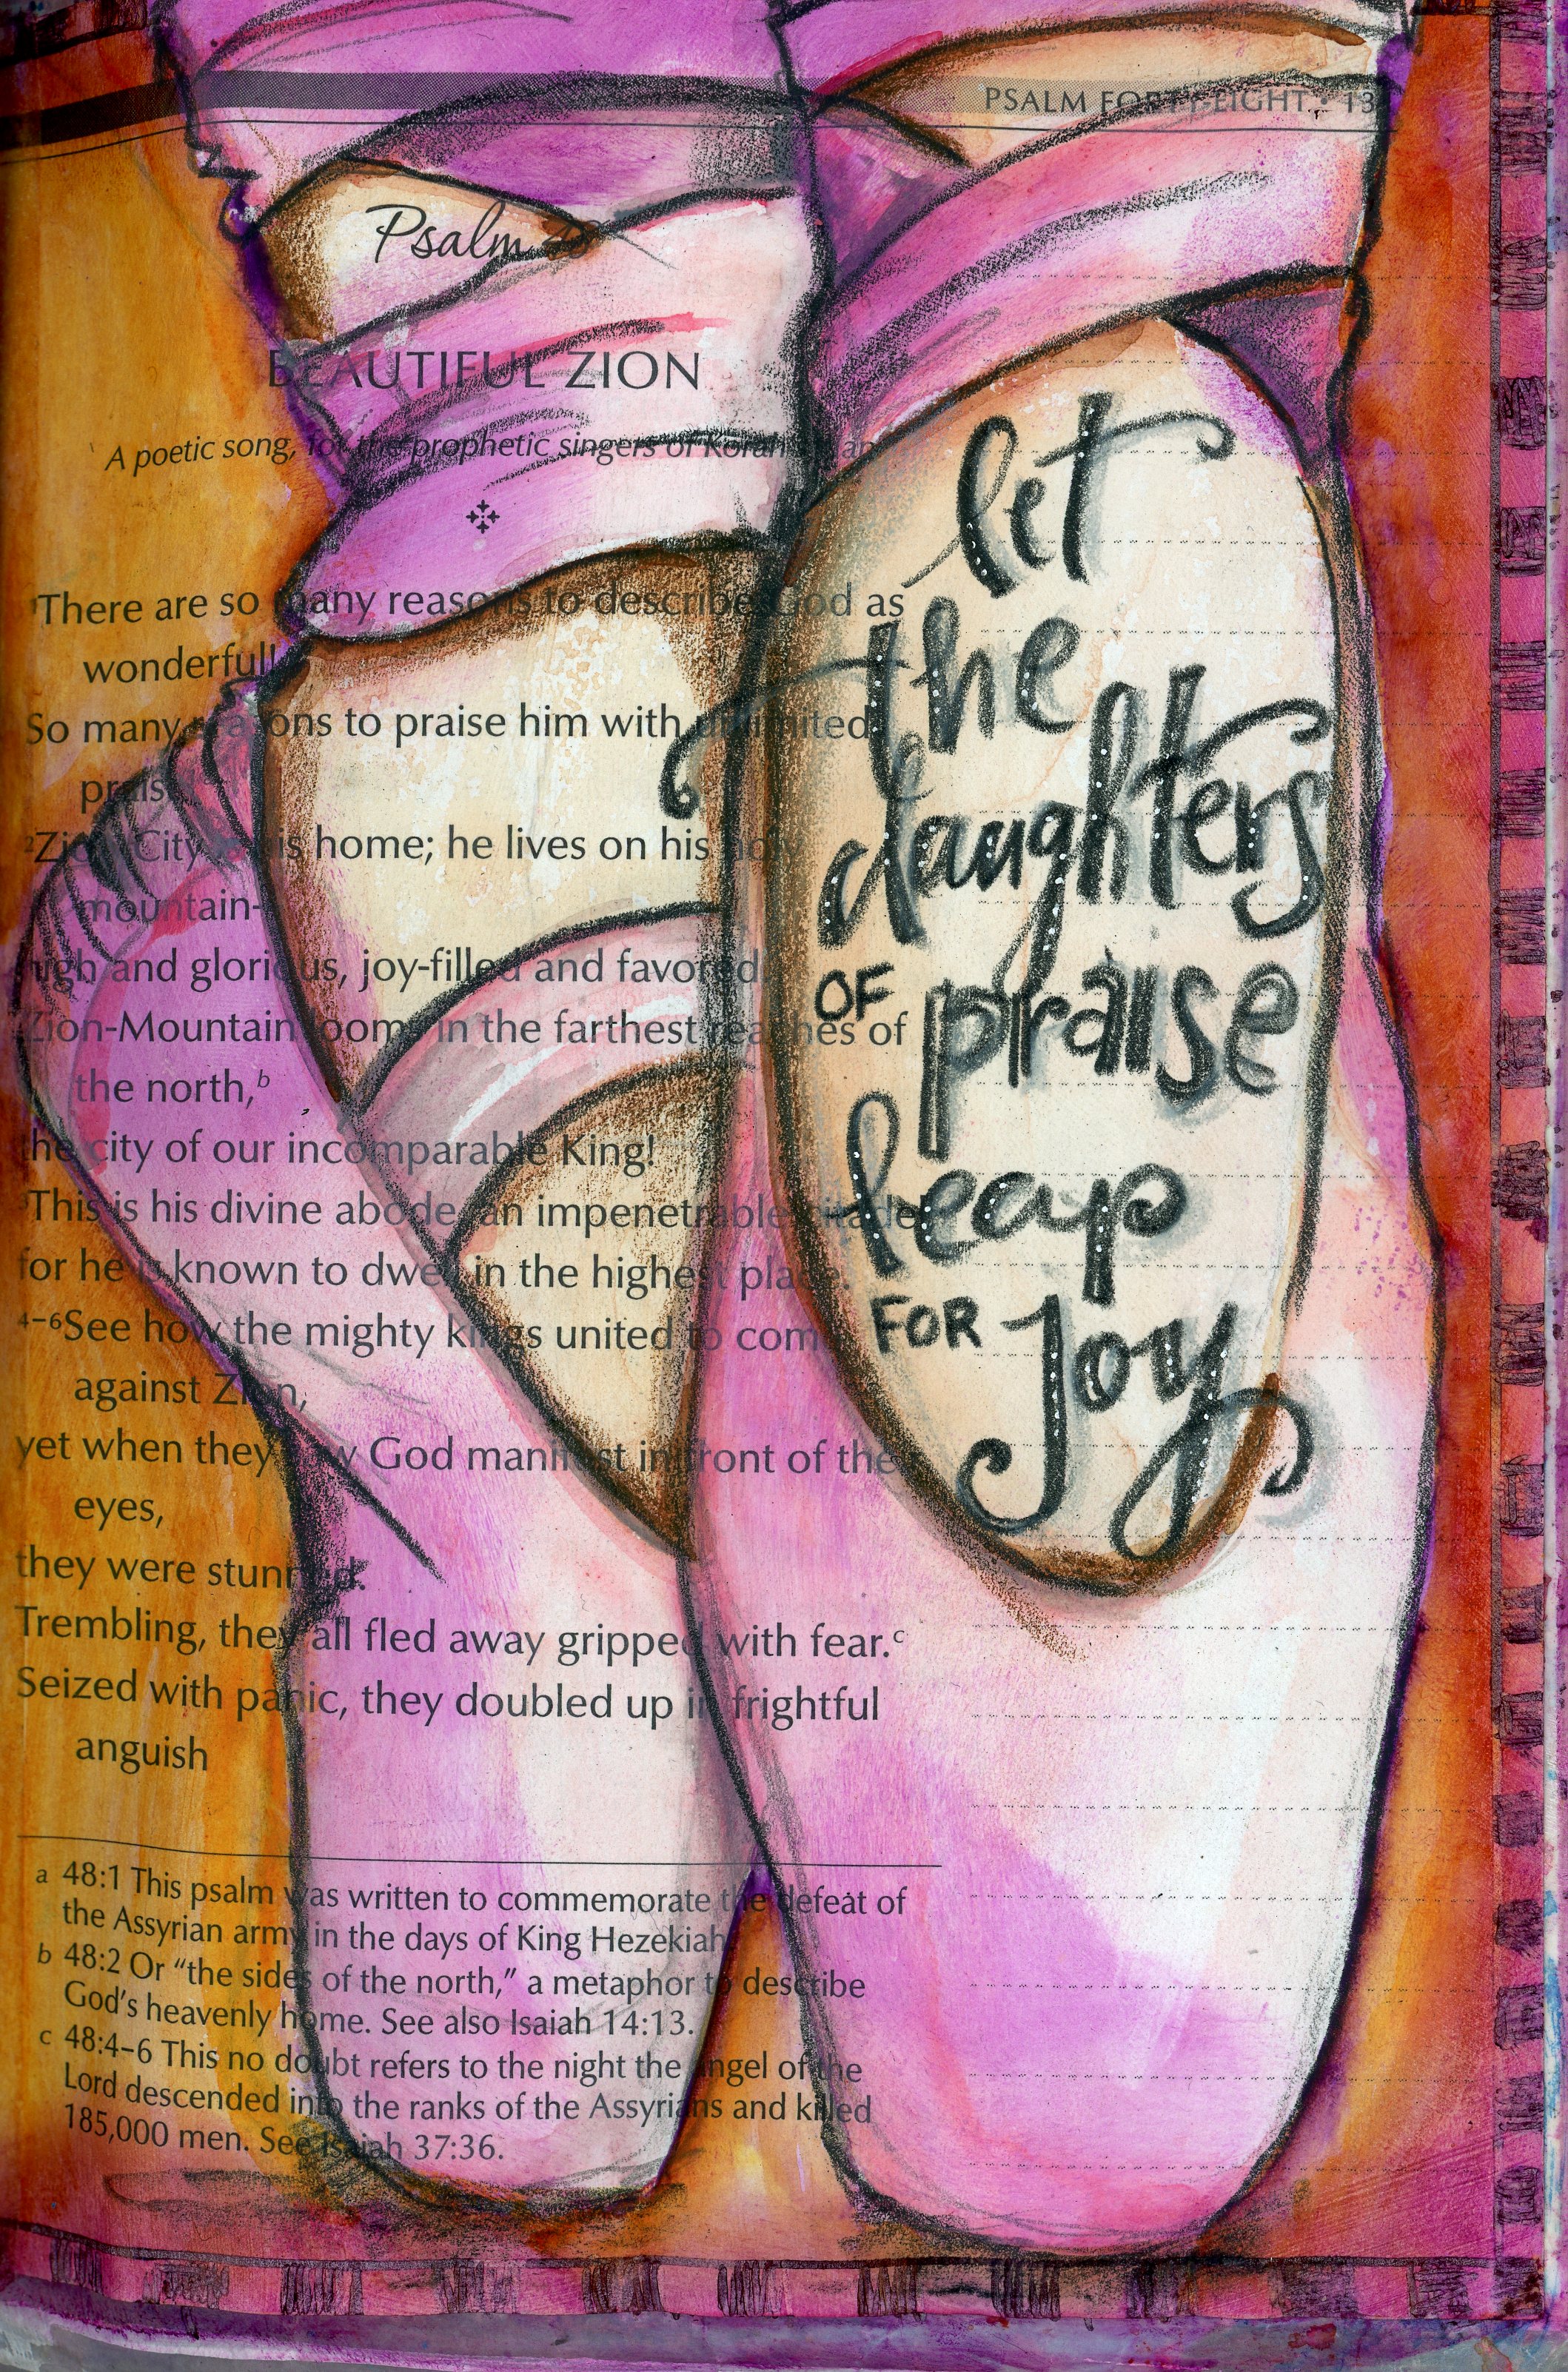 PSALM FORTY-EIGHT • 13
Psalm 48
BEAUTIFUL ZION
A poetic song, for the prophetic singers of Korah
¹There are so many reasons to describe God as
wonderful!
So many reasons to praise him with unlimited
praise
²Zion-City is his home; he lives on his holy
mountain-
high and glorious, joy-filled and favored.
Zion-Mountain looms in the farthest reaches of
the north,ᵇ
the city of our incomparable King!
³This is his divine abode, an impenetrable citadel
for he is known to dwell in the highest place.
⁴⁻⁶See how the mighty kings united to come
against Zion,
yet when they saw God manifest in front of their
eyes,
they were stunned.
Trembling, they all fled away gripped with fear.ᶜ
Seized with panic, they doubled up in frightful
anguish
a 48:1 This psalm was written to commemorate the defeat of
the Assyrian army in the days of King Hezekiah.
b 48:2 Or “the sides of the north,” a metaphor to describe
God’s heavenly home. See also Isaiah 14:13.
c 48:4–6 This no doubt refers to the night the angel of the
Lord descended into the ranks of the Assyrians and killed
185,000 men. See Isaiah 37:36.
let
the
daughters
OF praise
leap
FOR Joy